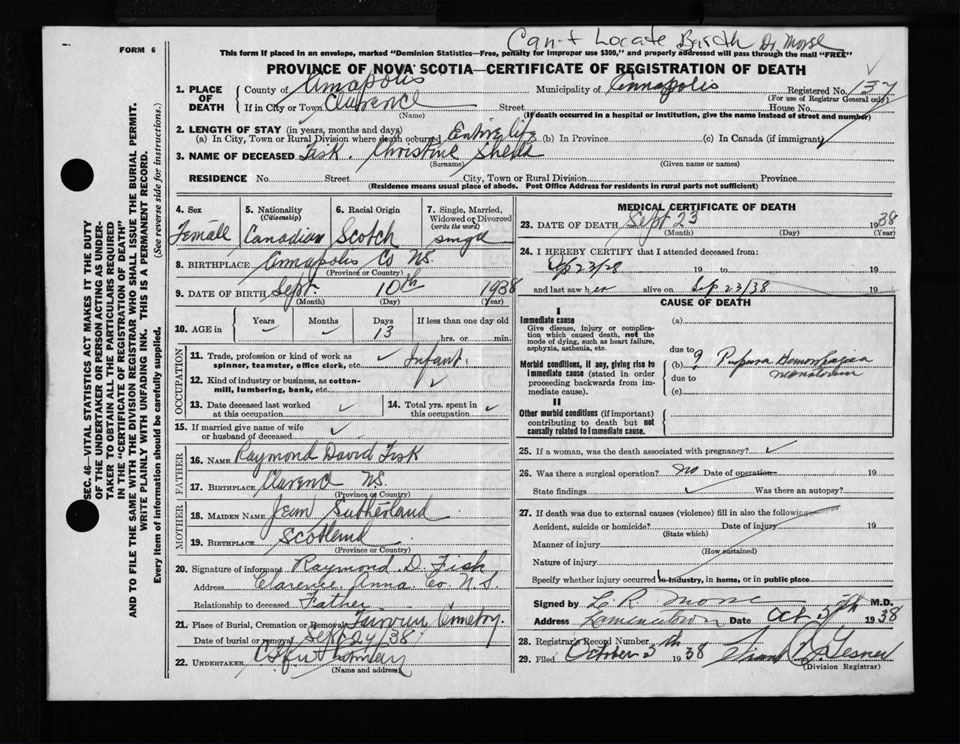 Can't Locate Barth Dr. Morse
FORM 6
This form if placed in an envelope, marked "Dominion Statistics—Free, penalty for improper use $300," and properly addressed will pass through the mail "FREE"
PROVINCE OF NOVA SCOTIA—CERTIFICATE OF REGISTRATION OF DEATH
1. PLACE OF DEATH
County of Annapolis Municipality of Annapolis Registered No. 137
(For use of Registrar General only)
If in City or Town Clarence Street House No.
(Name) (If death occurred in a hospital or institution, give the name instead of street and number)
2. LENGTH OF STAY (in years, months and days)
(a) In City, Town or Rural Division where death occurred Entire life (b) In Province (c) In Canada (if immigrant)
3. NAME OF DECEASED Fisk. Christine Sheila
(Surname) (Given name or names)
RESIDENCE No. Street City, Town or Rural Division Province
(Residence means usual place of abode. Post Office Address for residents in rural parts not sufficient)
4. Sex Female
5. Nationality (Citizenship) Canadian
6. Racial Origin Scotch
7. Single, Married, Widowed or Divorced (write the word) single
8. BIRTHPLACE Annapolis Co NS.
(Province or Country)
9. DATE OF BIRTH Sept. 10th 1938
(Month) (Day) (Year)
10. AGE in Years Months Days 13 If less than one day old hrs. or min.
OCCUPATION
11. Trade, profession or kind of work as spinner, teamster, office clerk, etc. Infant
12. Kind of industry or business, as cotton-mill, lumbering, bank, etc.
13. Date deceased last worked at this occupation
14. Total yrs. spent in this occupation
15. If married give name of wife or husband of deceased
FATHER
16. NAME Raymond David Fisk
17. BIRTHPLACE Clarence NS.
(Province or Country)
MOTHER
18. MAIDEN NAME Jean Sutherland
19. BIRTHPLACE Scotland
(Province or Country)
20. Signature of informant Raymond D. Fisk
Address Clarence, Anna. Co. N.S.
Relationship to deceased Father
21. Place of Burial, Cremation or Removal Cemetery.
Date of burial or removal Sept 24/38.
22. UNDERTAKER
(Name and address)
MEDICAL CERTIFICATE OF DEATH
23. DATE OF DEATH Sept 23 1938
(Month) (Day) (Year)
24. I HEREBY CERTIFY that I attended deceased from:
19 to 19
and last saw her alive on Sep 23/38 19
CAUSE OF DEATH
I
Immediate cause
Give disease, injury or complication which caused death, not the mode of dying, such as heart failure, asphyxia, asthenia, etc.
(a)
due to
Morbid conditions, if any, giving rise to immediate cause (stated in order proceeding backwards from immediate cause).
(b) ? Purpura
due to
(c)
II
Other morbid conditions (if important) contributing to death but not causally related to immediate cause.
25. If a woman, was the death associated with pregnancy?
26. Was there a surgical operation? no Date of operation 19
State findings Was there an autopsy?
27. If death was due to external causes (violence) fill in also the following
Accident, suicide or homicide? Date of injury 19
(State which)
Manner of injury
(How sustained)
Nature of injury
Specify whether injury occurred in industry, in home, or in public place
Signed by L R Morse M.D.
Address Date Oct 5th 1938
28. Registrar's Record Number
29. Filed October 5th 1938
(Division Registrar)
SEC. 46—VITAL STATISTICS ACT MAKES IT THE DUTY
OF THE UNDERTAKER OR PERSON ACTING AS UNDER-
TAKER TO OBTAIN ALL THE PARTICULARS REQUIRED
IN THE "CERTIFICATE OF REGISTRATION OF DEATH"
AND TO FILE THE SAME WITH THE DIVISION REGISTRAR WHO SHALL ISSUE THE BURIAL PERMIT.
WRITE PLAINLY WITH UNFADING INK. THIS IS A PERMANENT RECORD.
Every item of information should be carefully supplied. (See reverse side for instructions.)